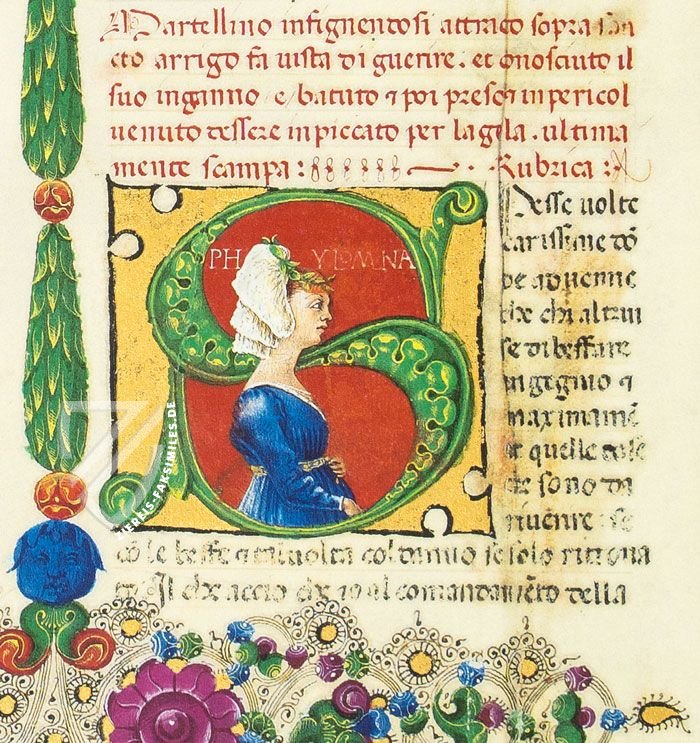 Martellino infignendosi attrato sopra san
cto arrigo fa vista di guerire. et conosciuto il
suo inganno e batuto & poi preso & in pericol
venuto dessere inpiccato per la gola. ultima
mente scampa: Rubrica:
PHYLOMNA
Spesse volte
carissime do
ne advenne
che chi altrui
se di beffare
ingegnio &
maximamē
te quelle cose
che sono da
riverire se
cō le beffe & tal volta col danno se solo ritrova
to. Il che accio che io al comandamēto della
ZIEREIS-FAKSIMILES.DE